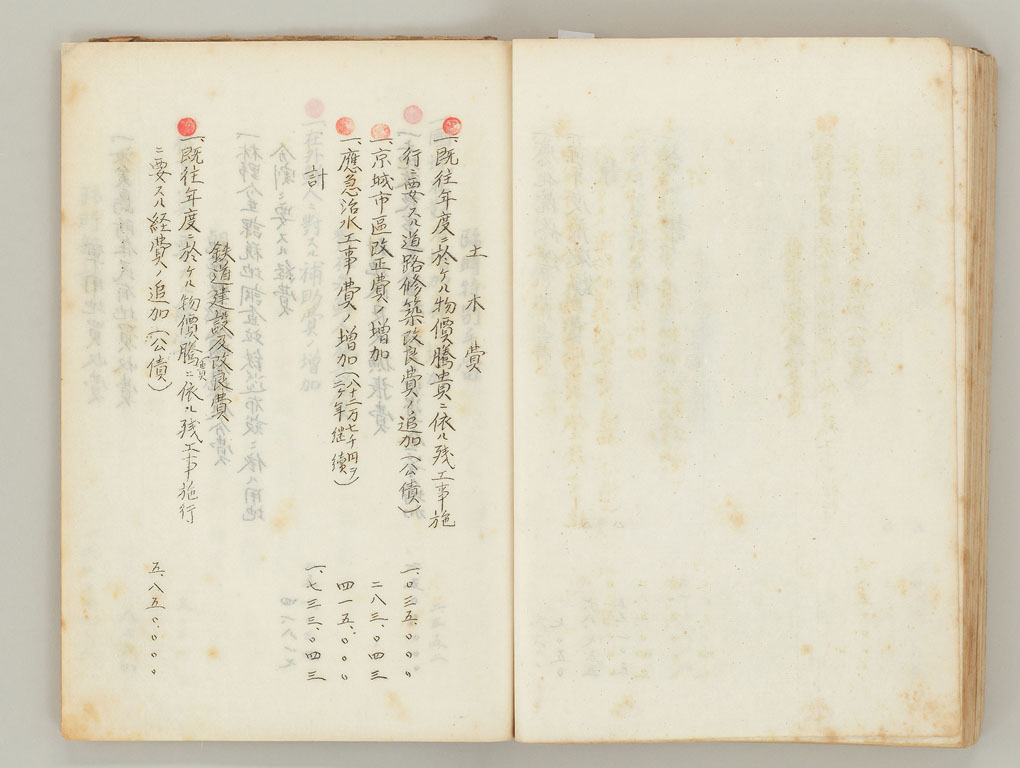 土木費
一、既往年度ニ於ケル物價騰貴ニ依ル残工事施
行ニ要スル道路修築改良費ノ追加(公債)
一、〇三五、〇〇〇
一、京城市區改正費ノ増加
二八三、〇四三
一、應急治水工事費ノ増加(八十二万七千円ヲ二ケ年継續)
四一五、〇〇〇
計
一、七三三、〇四三
鉄道建設及改良費
一、既往年度ニ於ケル物價騰貴ニ依ル残工事施行
ニ要スル経費ノ追加(公債)
五、八五〇、〇〇〇